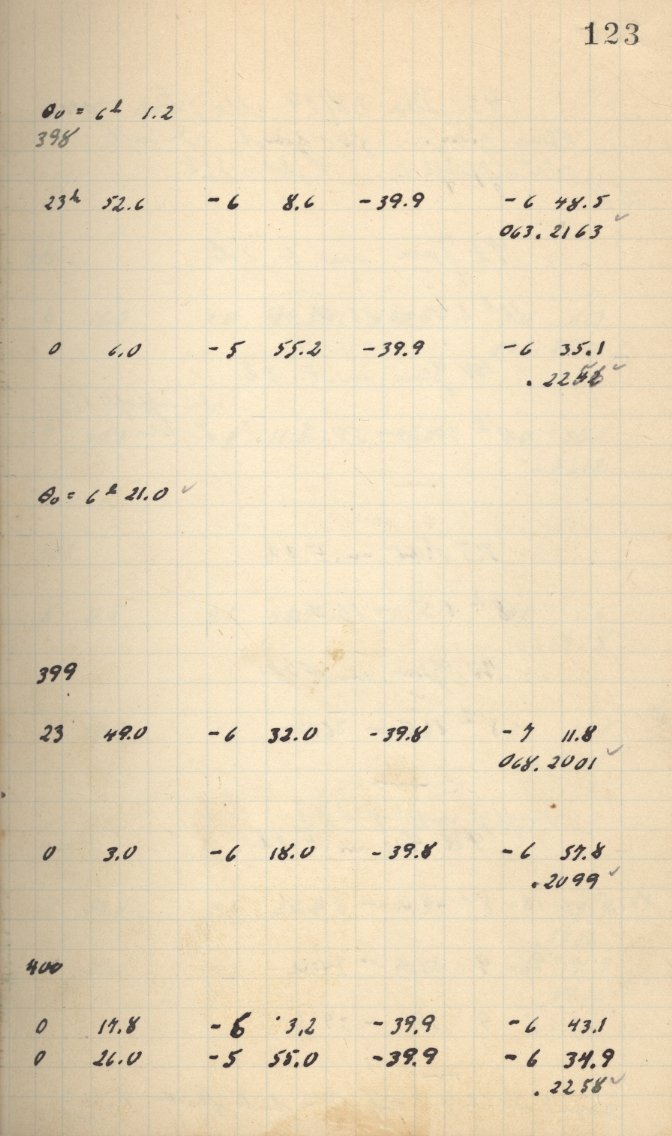 123
θ₀ = 6ʰ 1.2
398
23ʰ 52.6 -6 8.6 -39.9 -6 48.5
063.2163 ✓
0 6.0 -5 55.2 -39.9 -6 35.1
.2256 ✓
θ₀ = 6ʰ 21.0 ✓
399
23 49.0 -6 32.0 -39.8 -7 11.8
068.2001 ✓
0 3.0 -6 18.0 -39.8 -6 57.8
.2099 ✓
400
0 17.8 -6 3.2 -39.9 -6 43.1
0 26.0 -5 55.0 -39.9 -6 34.9
.2258 ✓